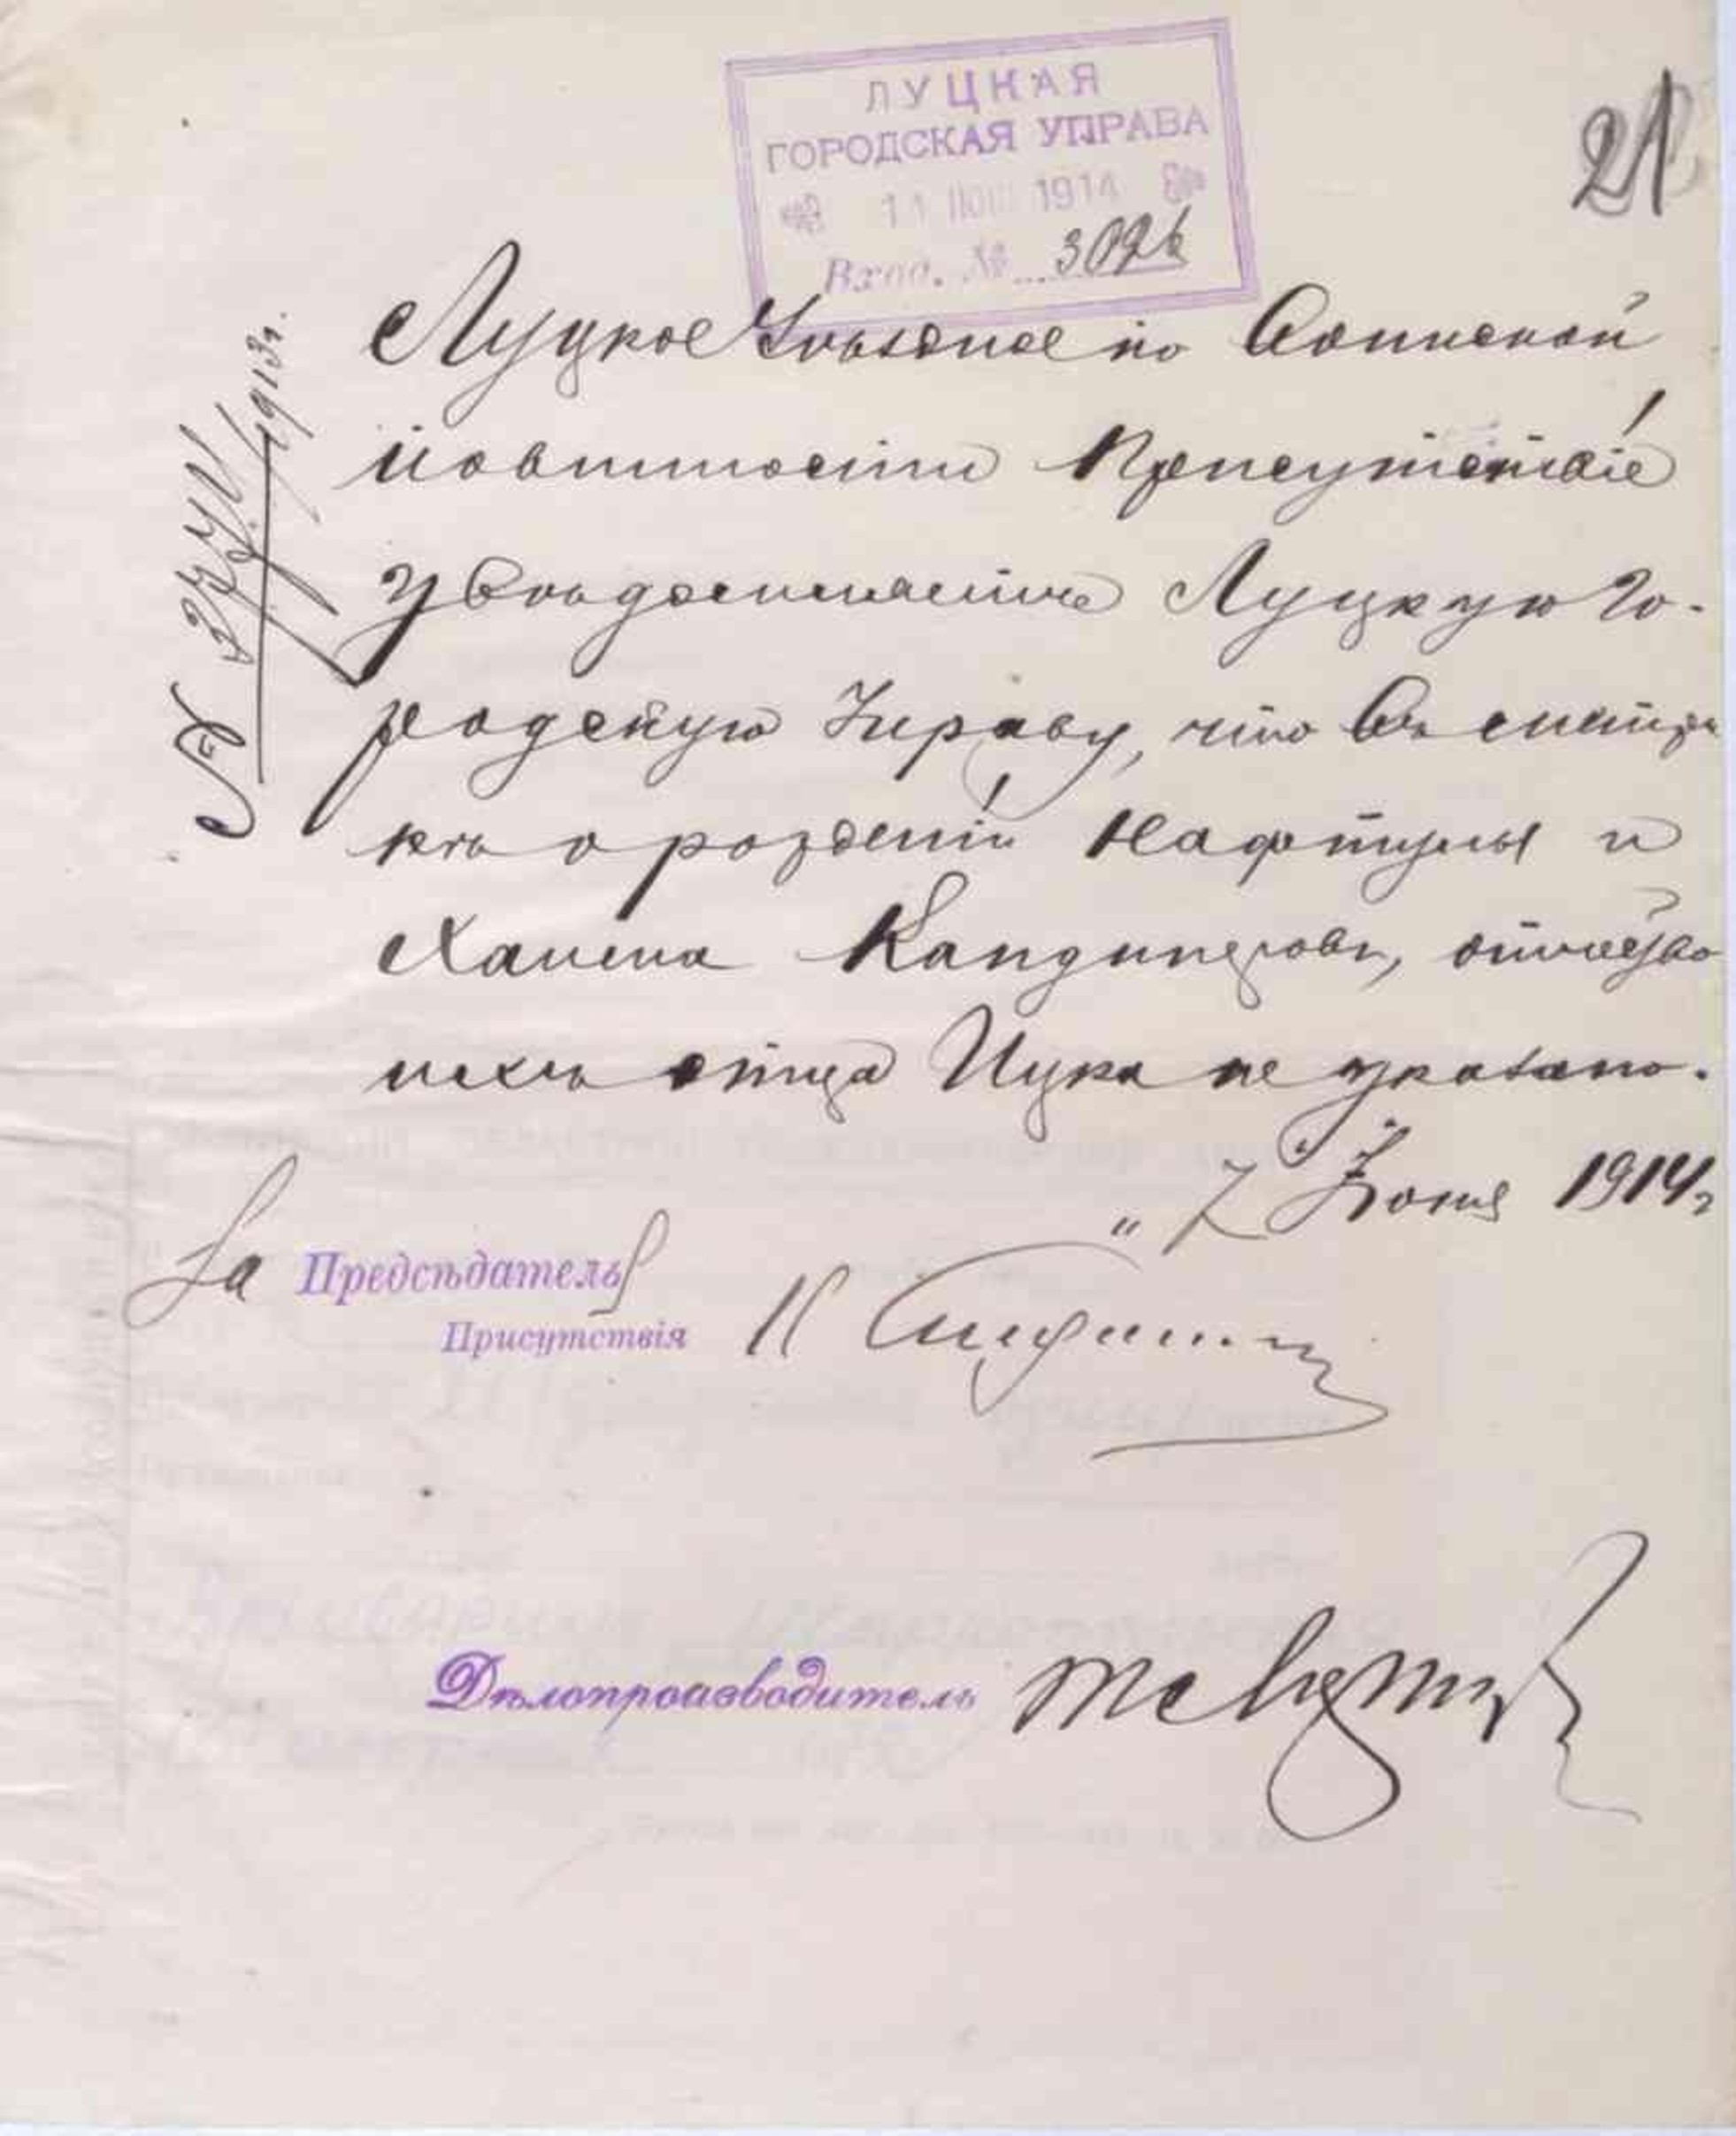 ЛУЦКАЯ
ГОРОДСКАЯ УПРАВА
11 1914
Вход. № 3096
21
№ 1913 г.
Луцкое Уѣздное по Воинской
повинности Присутствіе
увѣдомляетъ Луцкую Го-
родскую Управу, что въ
о рожденіи Нафтулы и
Хаима отчество
ихъ отца Ицка не указано.
" 7 Іюня 1914 г
За Предсѣдателя
Присутствія
Дѣлопроизводитель